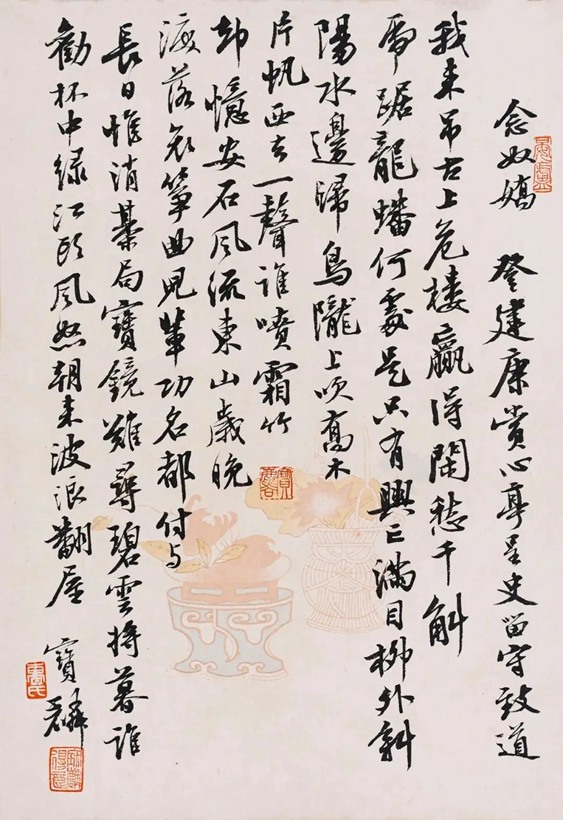 念奴嬌 登建康賞心亭呈史留守致道
我來吊古上危樓贏得閑愁千斛
虎踞龍蟠何處是只有興亡滿目柳外斜
陽水邊歸鳥隴上吹喬木
片帆西去一聲誰噴霜竹
却憶安石風流東山歲晚
淚落哀箏曲兒輩功名都付与
長日惟消棊局寶鏡難尋碧雲將暮誰
勸杯中綠江頭風怒朝來波浪翻屋
寶麟